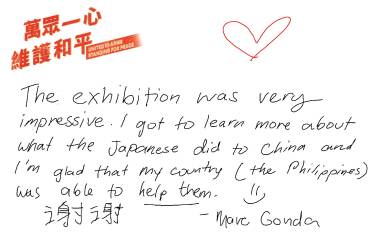 萬眾一心
維護和平
UNITED AS ONE
STANDING FOR PEACE
The exhibition was very
impressive. I got to learn more about
what the Japanese did to China and
I'm glad that my country (the Philippines)
was able to help them. =)
谢谢
- Marc Gonda